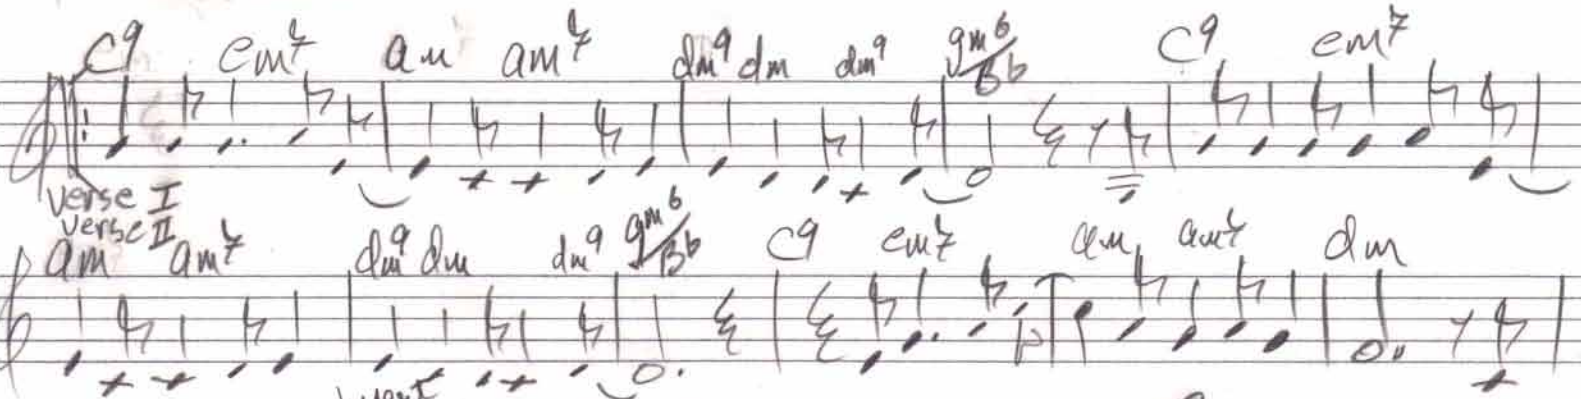 C9 em7 am am7 dm9 dm dm9 gm6/Bb C9 em7
verse I
verse II
am am7 dm9 dm dm9 gm6/Bb C9 em7 am am7 dm